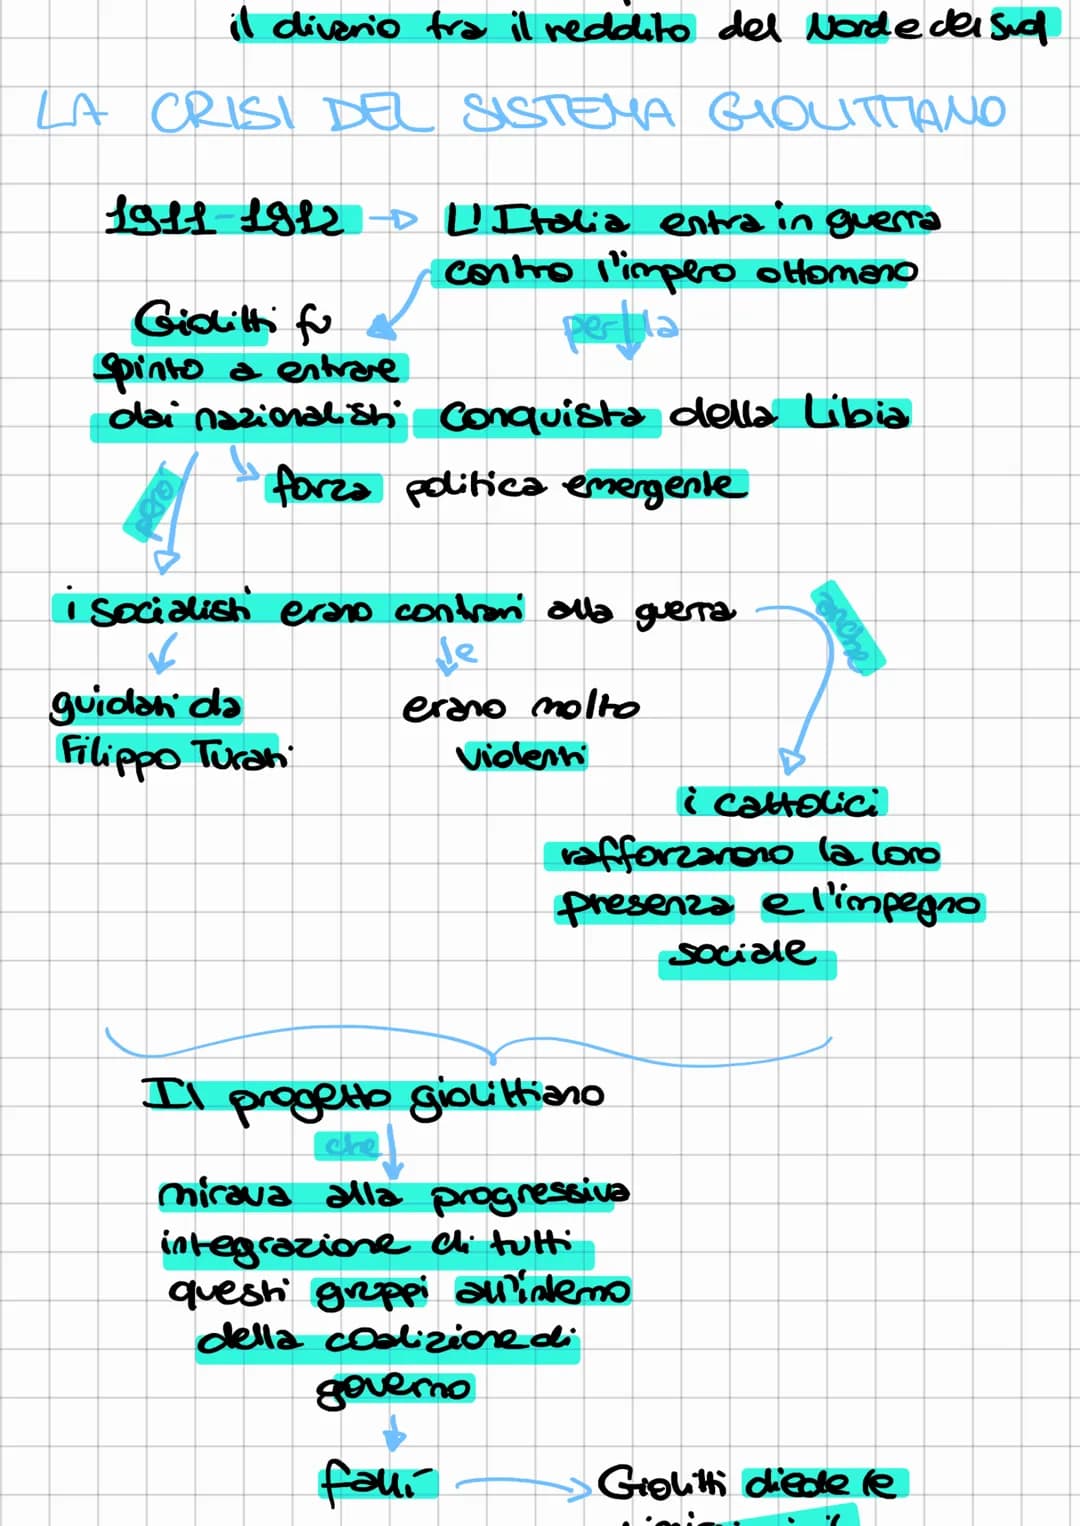 il divario tra il reddito del Nord e del Sud
LA CRISI DEL SISTEMA GIOLITTIANO
1911-1912 → L'Italia entra in guerra
contro l'impero ottomano
Giolitti fu
per la
spinto a entrare
dai nazionalisti
conquista della Libia
però
forza politica emergente
i socialisti erano contrari alla guerra
anche
e
guidati da
Filippo Turati
erano molto
violenti
i cattolici
rafforzarono la loro
presenza e l'impegno
sociale
Il progetto giolittiano
che
mirava alla progressiva
integrazione di tutti
questi gruppi all'interno
della coalizione di
governo
fallì → Giolitti diede le